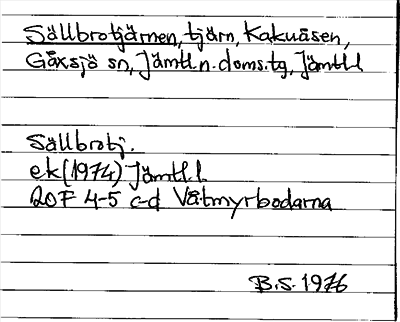 Sällbrotjärnen, tjärn, Kakuåsen,
Gåxsjö sn, Jämtl.n.doms.tg, Jämtl l
Sällbrotj.
ek(1974) Jämtl.l
20F 4-5 c-d Våtmyrbodarna
B.S. 1976